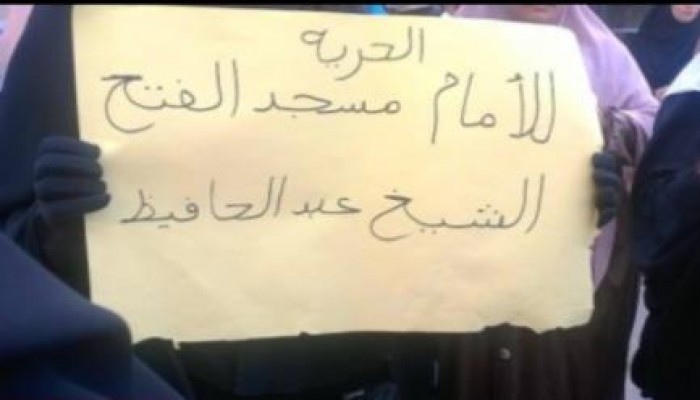 الحرية
للأمام مسجد الفتح
الشيخ عبد الحافيظ